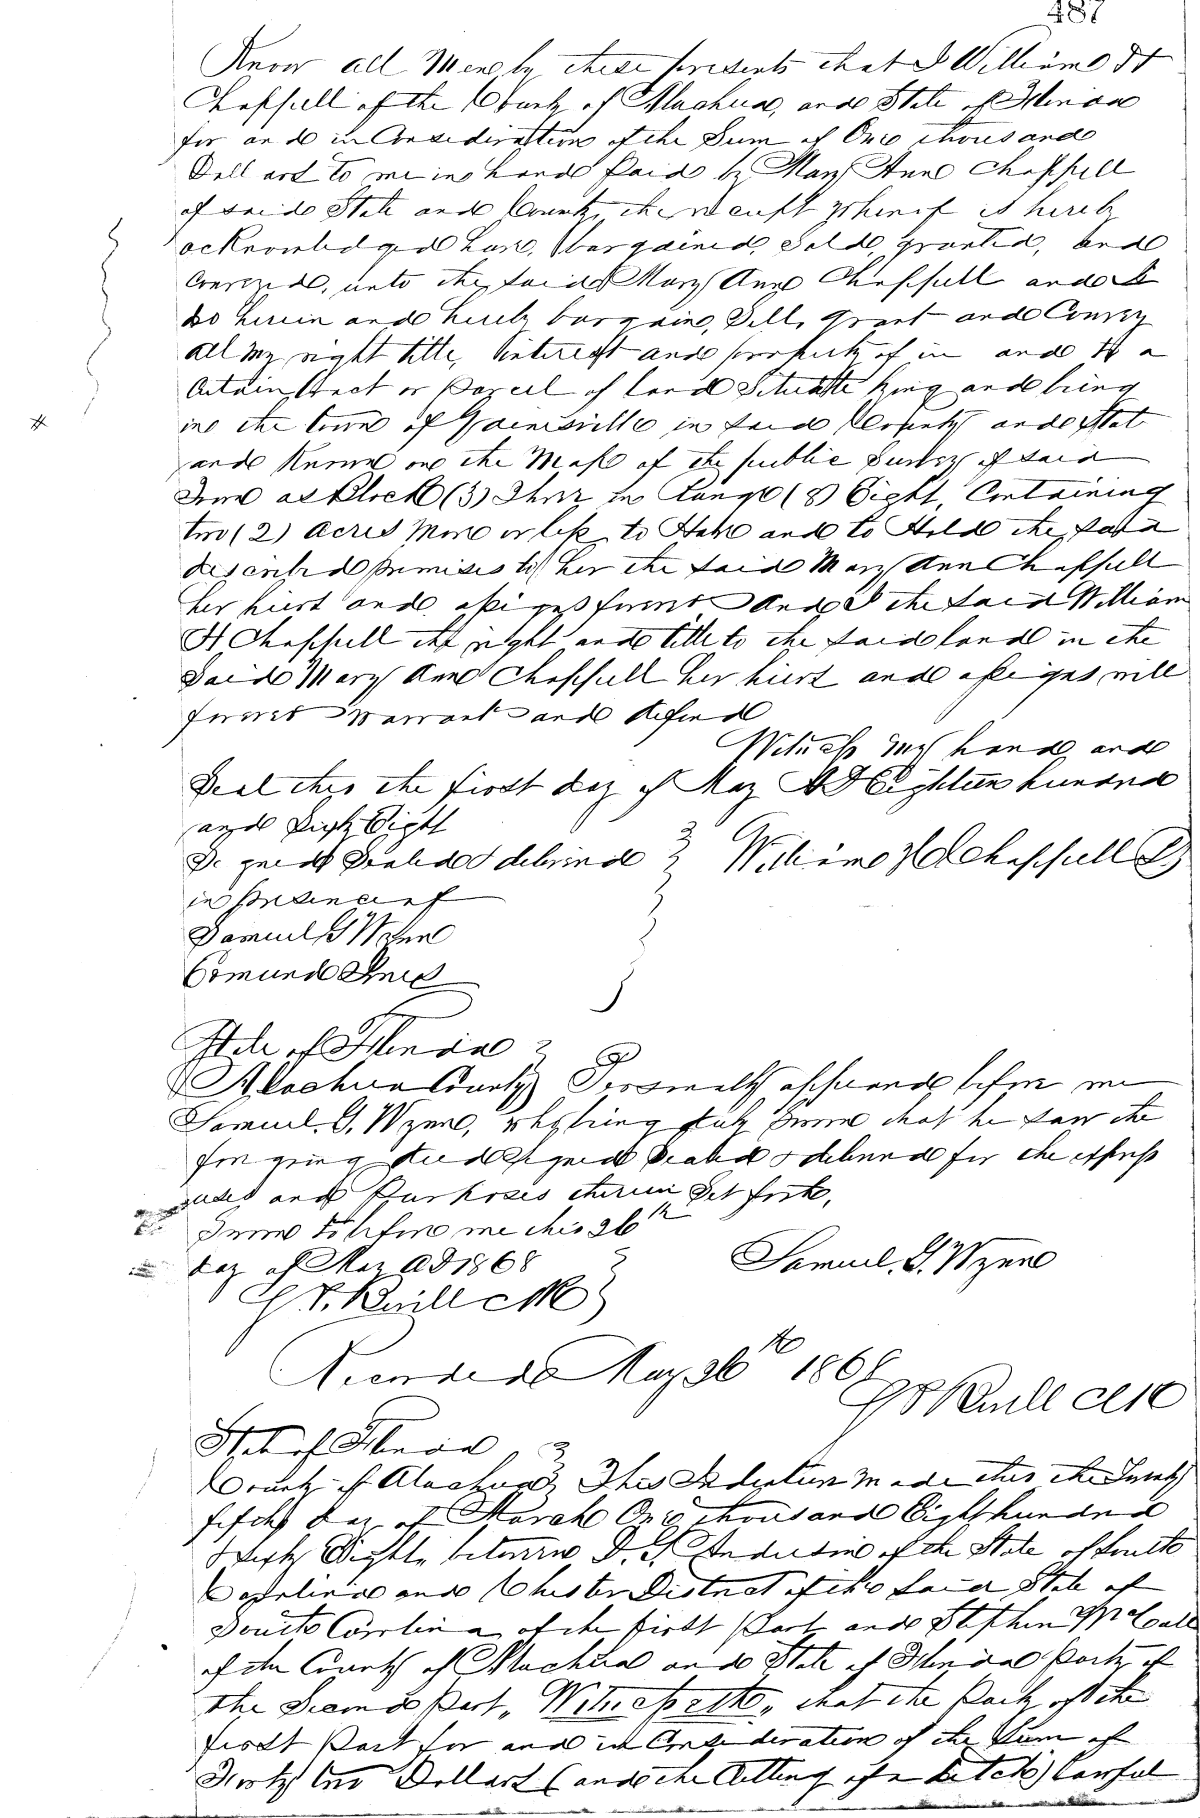 487
Know all Men by these presents that I William H
Chappell of the County of Alachua, and State of Florida
for and in Consideration of the Sum of One thousand
Dollars to me in hand Paid by Mary Ann Chappell
of said State and County, the receipt whereof is hereby
acknowledged have, bargained, Sold, granted, and
Conveyed, unto the said Mary Ann Chappell and I
do herein and hereby bargain, Sell, grant and Convey
all my right title, interest and property of in and to a
Certain tract or Parcel of land Situate lying and being
in the town of Gainesville in said County and State
and Known on the Map of the public Survey of said
Town as Block (3) Three in Range (8) Eight, Containing
two (2) acres More or less to Have and to Hold the said
described premises to her the said Mary Ann Chappell
her heirs and assigns forever And I the said William
H Chappell the right and title to the said land in the
Said Mary Ann Chappell her heirs and assigns will
forever Warrant and defend
Witness my hand and
Seal this the first day of May AD Eighteen hundred
and Sixty Eight
Signed Sealed & delivered William H Chappell
in presence of
Samuel G Wynn
Edmund
State of Florida
Alachua County Personally appeared before me
Samuel. G. Wynn, who being duly sworn that he saw the
foregoing deed Signed Sealed & delivered for the express
uses and Purposes therein Set forth,
Sworn to before me this 26th
day of May AD 1868 Samuel. G. Wynn
Clk
Recorded May 26th 1868
Clk
State of Florida
County of Alachua This Indenture made this the Twenty
fifth day of March One thousand Eight hundred
& Sixty Eight, between D. G. Anderson of the State of South
Carolina and Chester District of the Said State of
South Carolina of the first Part and Stephen McCall
of the County of Alachua and State of Florida Party of
the Second Part, Witnesseth, that the Party of the
first Part for and in Consideration of the Sum of
Forty two Dollars (and the Cutting of a ditch) lawful